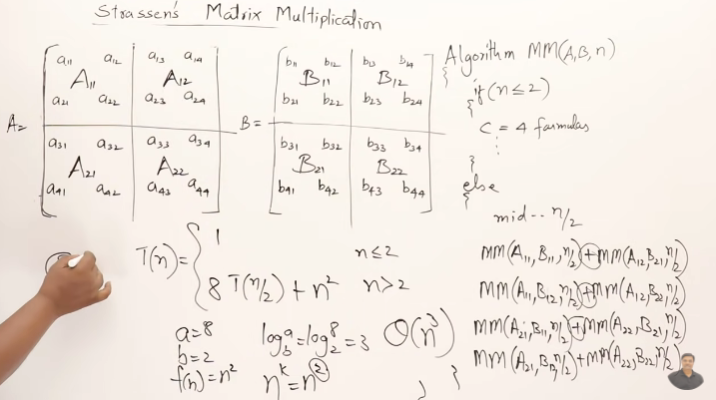 Strassen's Matrix Multiplication
A =
a11 a12 a13 a14
A11 A12
a21 a22 a23 a24
a31 a32 a33 a34
A21 A22
a41 a42 a43 a44
B =
b11 b12 b13 b14
B11 B12
b21 b22 b23 b24
b31 b32 b33 b34
B21 B22
b41 b42 b43 b44
Algorithm MM(A,B,n)
{
if(n≤2)
{
C = 4 formulas
⋮
}
else
{
mid-- n/2
MM(A11,B11,n/2)+MM(A12,B21,n/2)
MM(A11,B12,n/2)+MM(A12,B22,n/2)
MM(A21,B11,n/2)+MM(A22,B21,n/2)
MM(A21,B12,n/2)+MM(A22,B22,n/2)
}
T(n)= {
1 n≤2
8 T(n/2) + n² n>2
a=8
b=2
f(n)=n²
log_b a = log_2 8 = 3
n^k = n^2
O(n³)